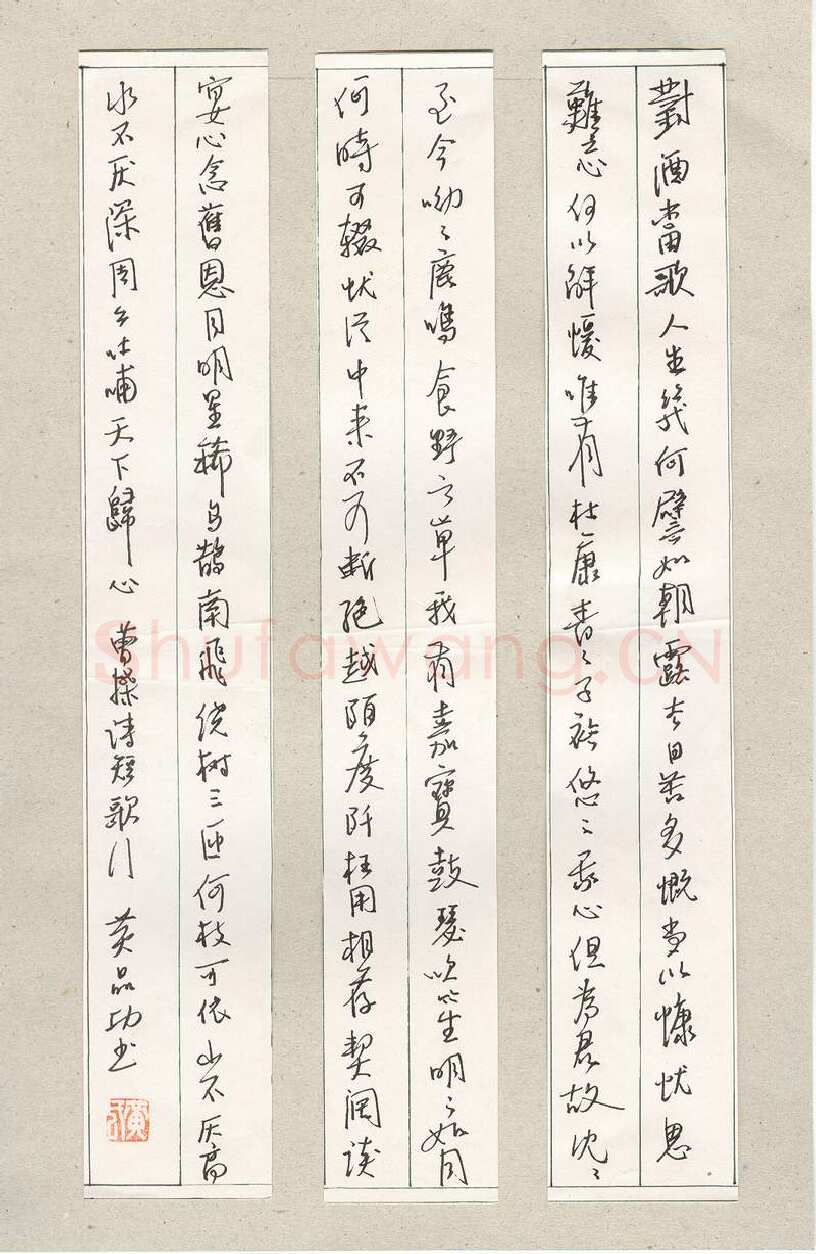 對酒當歌人生幾何譬如朝露去日苦多慨當以慷忧思
難忘何以解憂唯有杜康青々子衿悠々我心但為君故沈々
至今呦々鹿鳴食野之草我有嘉賓鼓瑟吹笙明々如月
何時可辍忧從中来不可断绝越陌度阡枉用相存契阔谈
宴心念舊恩月明星稀乌鹊南飛绕树三匝何枝可依山不厌高
水不厌深周公吐哺天下歸心曹操诗短歌行黄品功书
Shufawang.CN